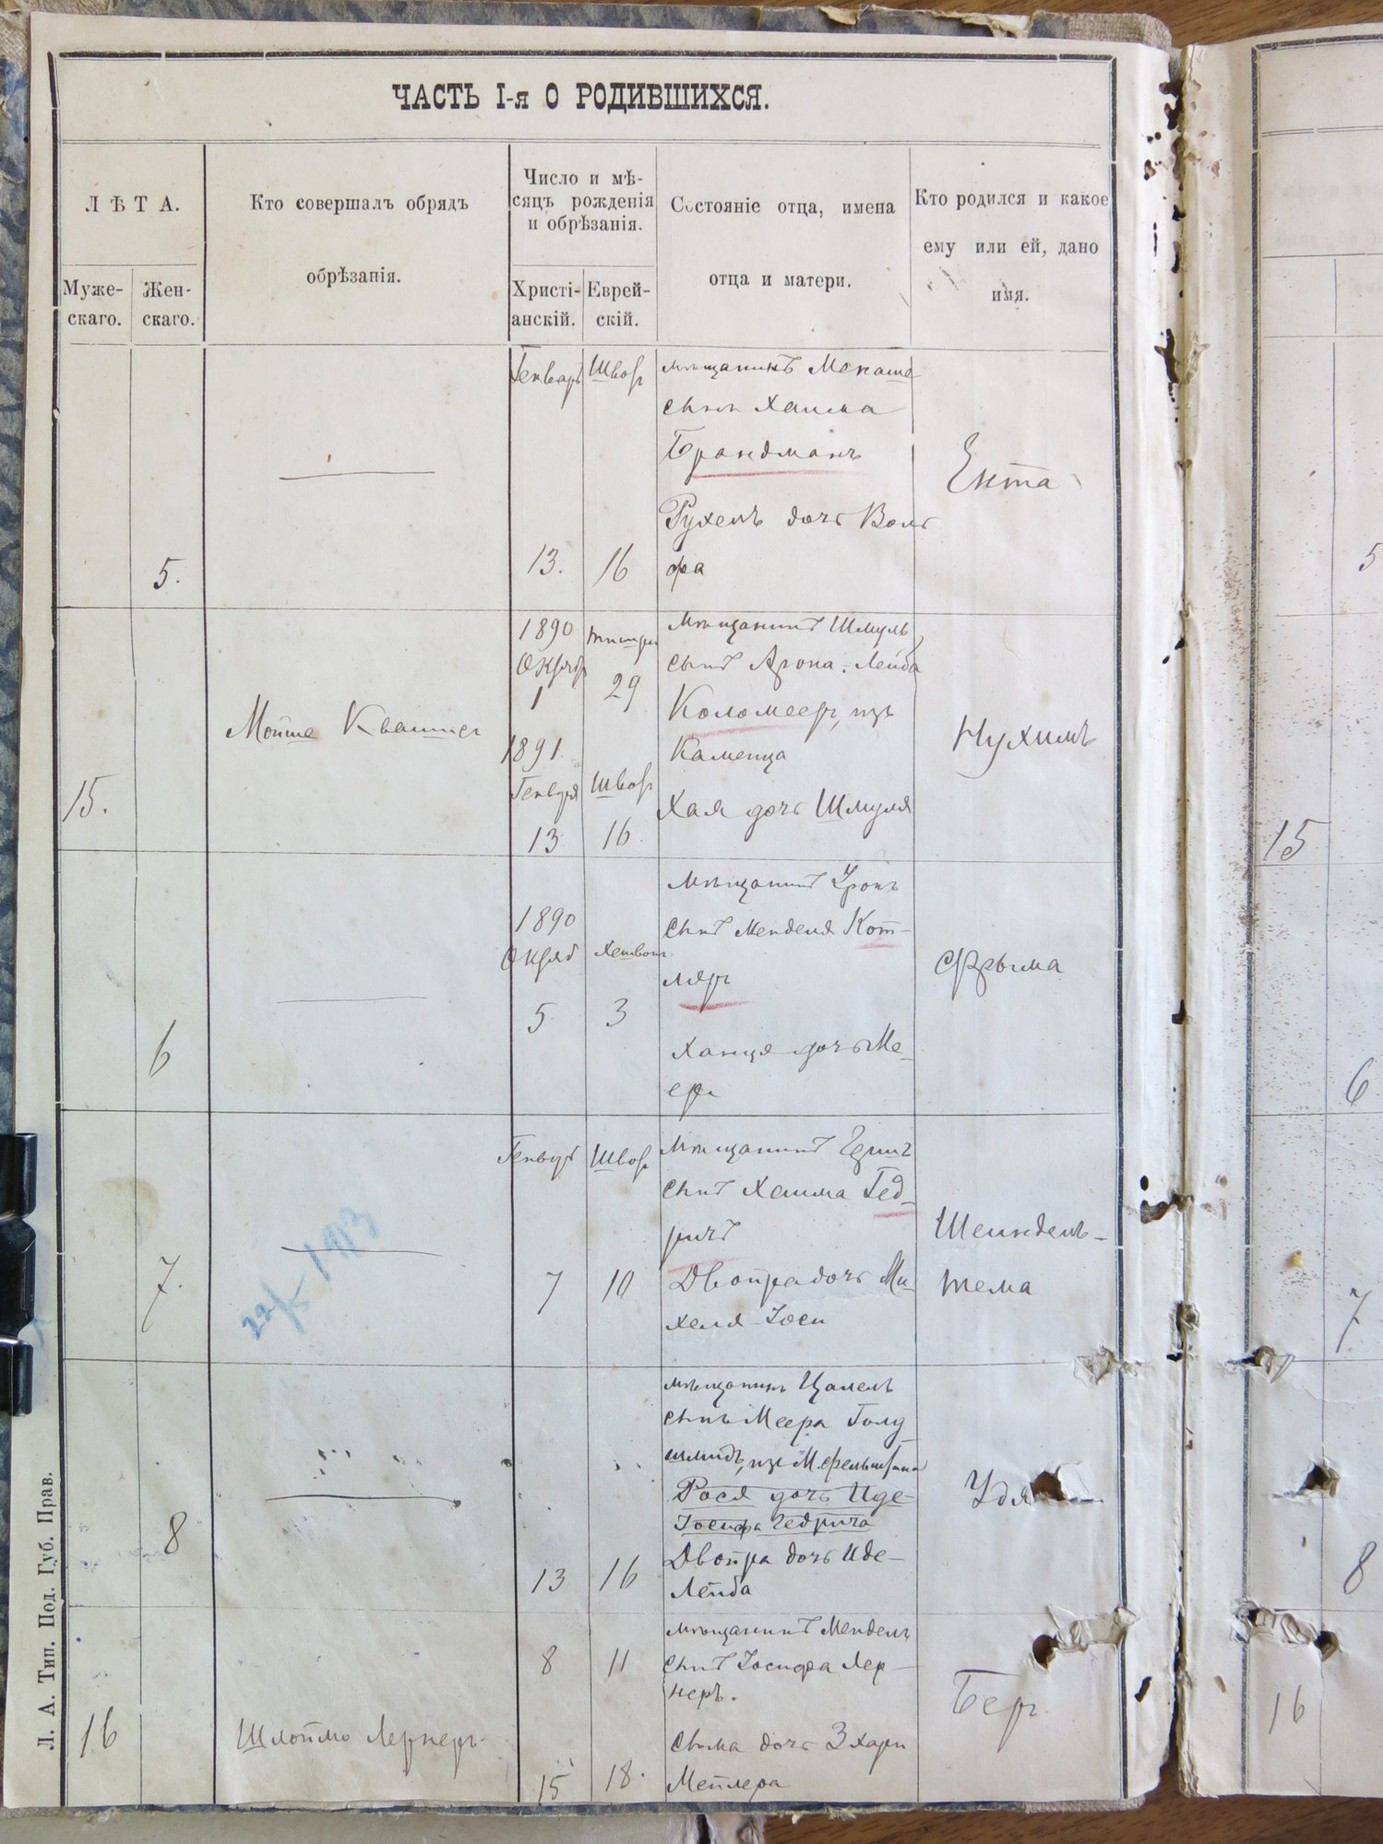 ЧАСТЬ I-я О РОДИВШИХСЯ.
ЛѢТА.
Муже-
скаго.
Жен-
скаго.
Кто совершалъ обрядъ
обрѣзанія.
Число и мѣ-
сяцъ рожденія
и обрѣзанія.
Христі-
анскій.
Еврей-
скій.
Состояніе отца, имена
отца и матери.
Кто родился и какое
ему или ей, дано
имя.
5.
Генварь
13.
Шват
16
мѣщанинъ Менаше
сынъ Хаима
Брандманъ
Рухель дочь Воль
фа
Ента
15.
Мойше Квашнер
1890
Октяб
1
1891
Генваря
13
тишри
29
Шват
16
Мѣщанинъ Шмуль
сынъ Арона-Лейба
Коломеер, изъ
Каменца
Хая дочь Шмуля
Нухимъ
6
1890
Октяб
5
Хешвон
3
Мѣщанинъ
сынъ Менделя Кот-
ляр
Ханця дочь Ме-
ера
Фрыма
7.
22/5 1913
Генвар
7
Шват
10
Мѣщанинъ Герш
сынъ Хаима Гед-
ричъ
Двойра дочь Ми-
хеля-Іоси
Шейндель-
тема
8
13
16
мѣщанинъ Цалель
сынъ Меера Голд
шмидъ, изъ М.
Рася дочь Иде-
Іосифа Гедрича
Двойра дочь Иде-
Лейба
Удя
16
Шлоймо Лернеръ
8
11
15
18.
мѣщанинъ Мендель
сынъ Іосифа Лер-
неръ.
Сыма дочь Зхари
Мейлера
Бер
Л. А. Тип. Под. Губ. Прав.
5
15
6
7
8
16